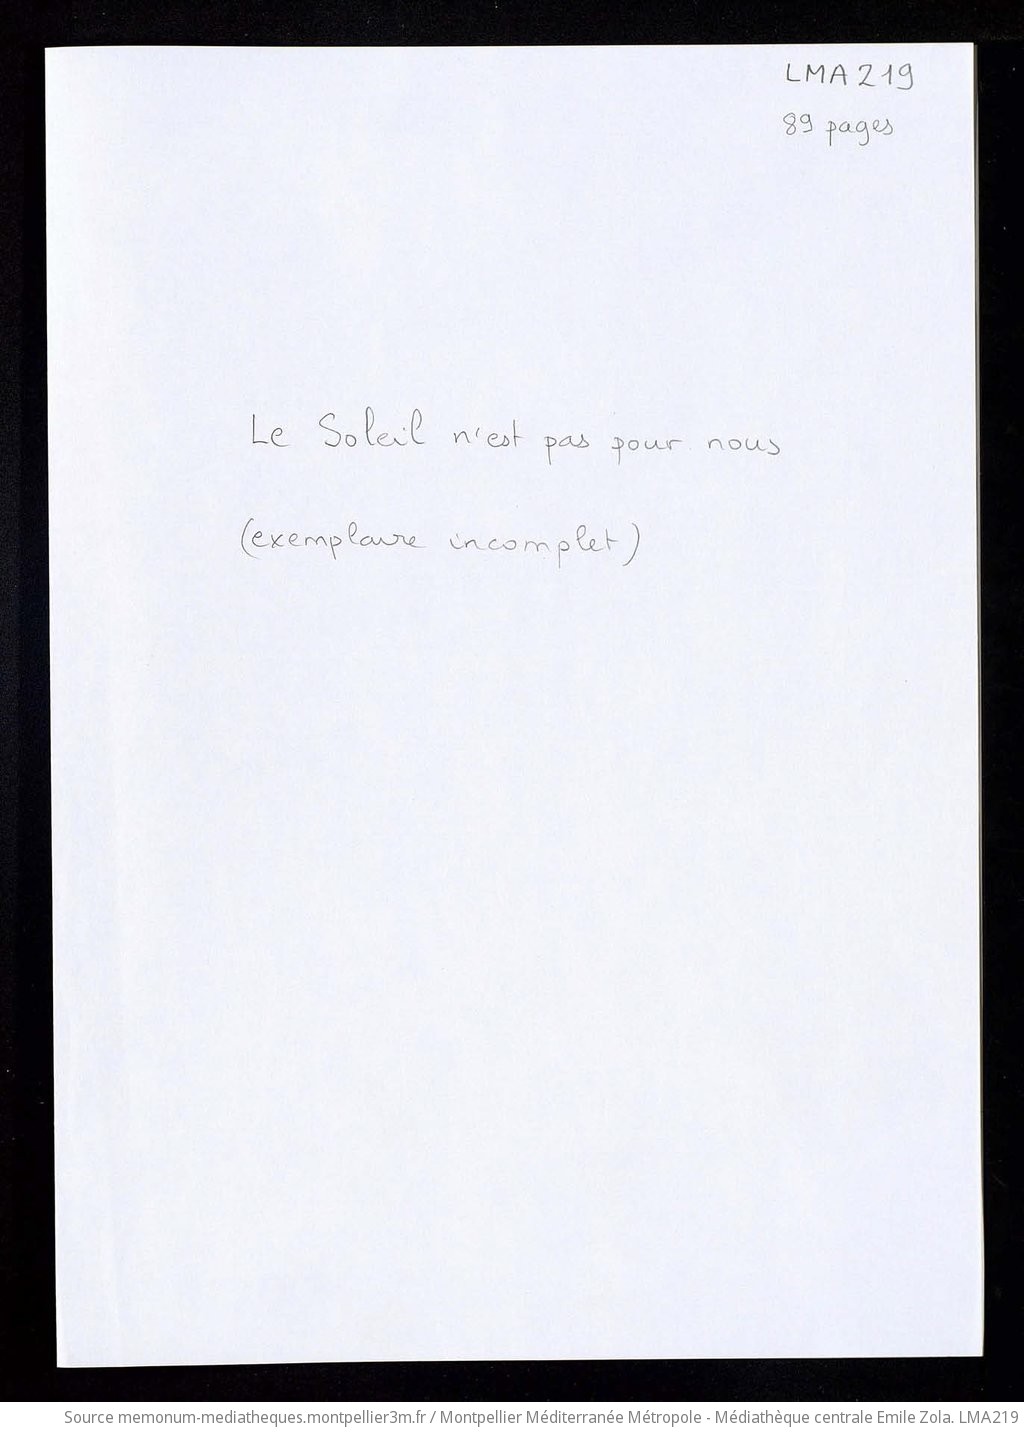 LMA 219
89 pages
Le Soleil n'est pas pour nous
(exemplaire incomplet)
Source memonum-mediatheques.montpellier3m.fr / Montpellier Méditerranée Métropole - Médiathèque centrale Emile Zola. LMA219